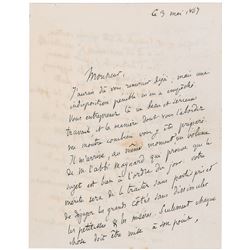 Ce 3 mai 1857
Monsieur,
J'aurais dû vous remercier déjà, mais une
indisposition pénible m'en a empêché
Vous entreprenez là un beau et
travail et la manière dont vous l'abordez
me montre combien vous y êtes préparé.
Il m'arrive, au même moment un volume
de M. l'abbé Maynard qui prouve que le
sujet est bien à l'ordre du jour. votre
mérite sera de le traiter sans parti pris et
de dégager les grands côtés sans dissimuler
les petitesses & les misères. Seulement chaque
chose doit être mise à son point,